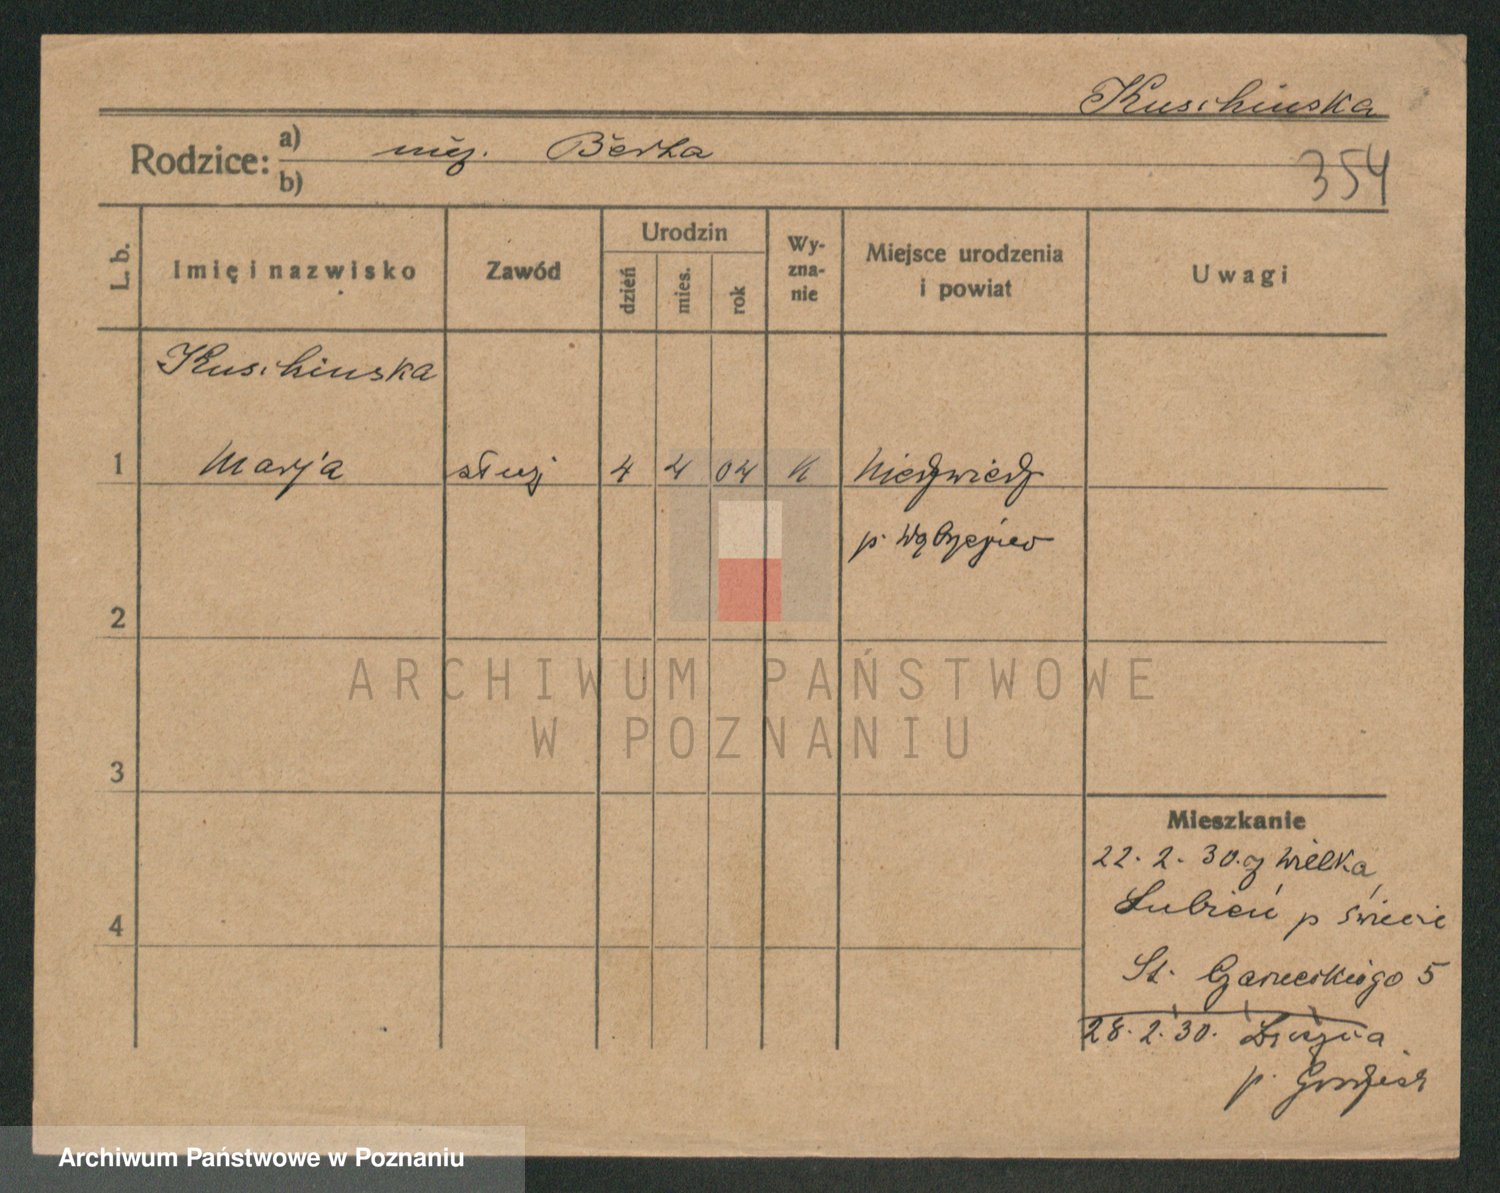 Kuschinska
Rodzice: a) niez. Berta
b)
354
L. b. Imię i nazwisko Zawód Urodzin dzień mies. rok Wyznanie Miejsce urodzenia i powiat Uwagi
Kuschinska
1 Marja służ 4 4 04 K Niedzwiedz
p. Wąbrzeźno
2
ARCHIWUM PAŃSTWOWE
W POZNANIU
3
Mieszkanie
22. 2. 30. z Wielka
Lubień p Świecie
4
St. Czarneckiego 5
28. 2. 30.
p. Grodzisk
Archiwum Państwowe w Poznaniu